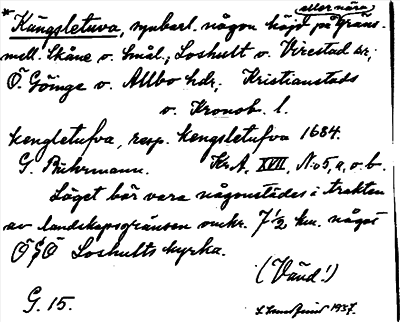 eller nära
*Kungsletuva, synbarl. någon höjd på gräns-
mell. Skåne o. Smål., Loshult o. Virestad sr;
Ö. Göinge o. Allbo hdr, Kristianstads
o. Kronob. l.
kongletufva, resp. Kongsletufva 1684.
G. Buhrmann. KrA, XVII, No 5, a, o. b.
Läget bör vara någonstädes i trakten
av landskapsgränsen omkr. 7½ km. något
Ö § Ö Loshults kyrka.
(Vänd!)
G. 15. 1937.